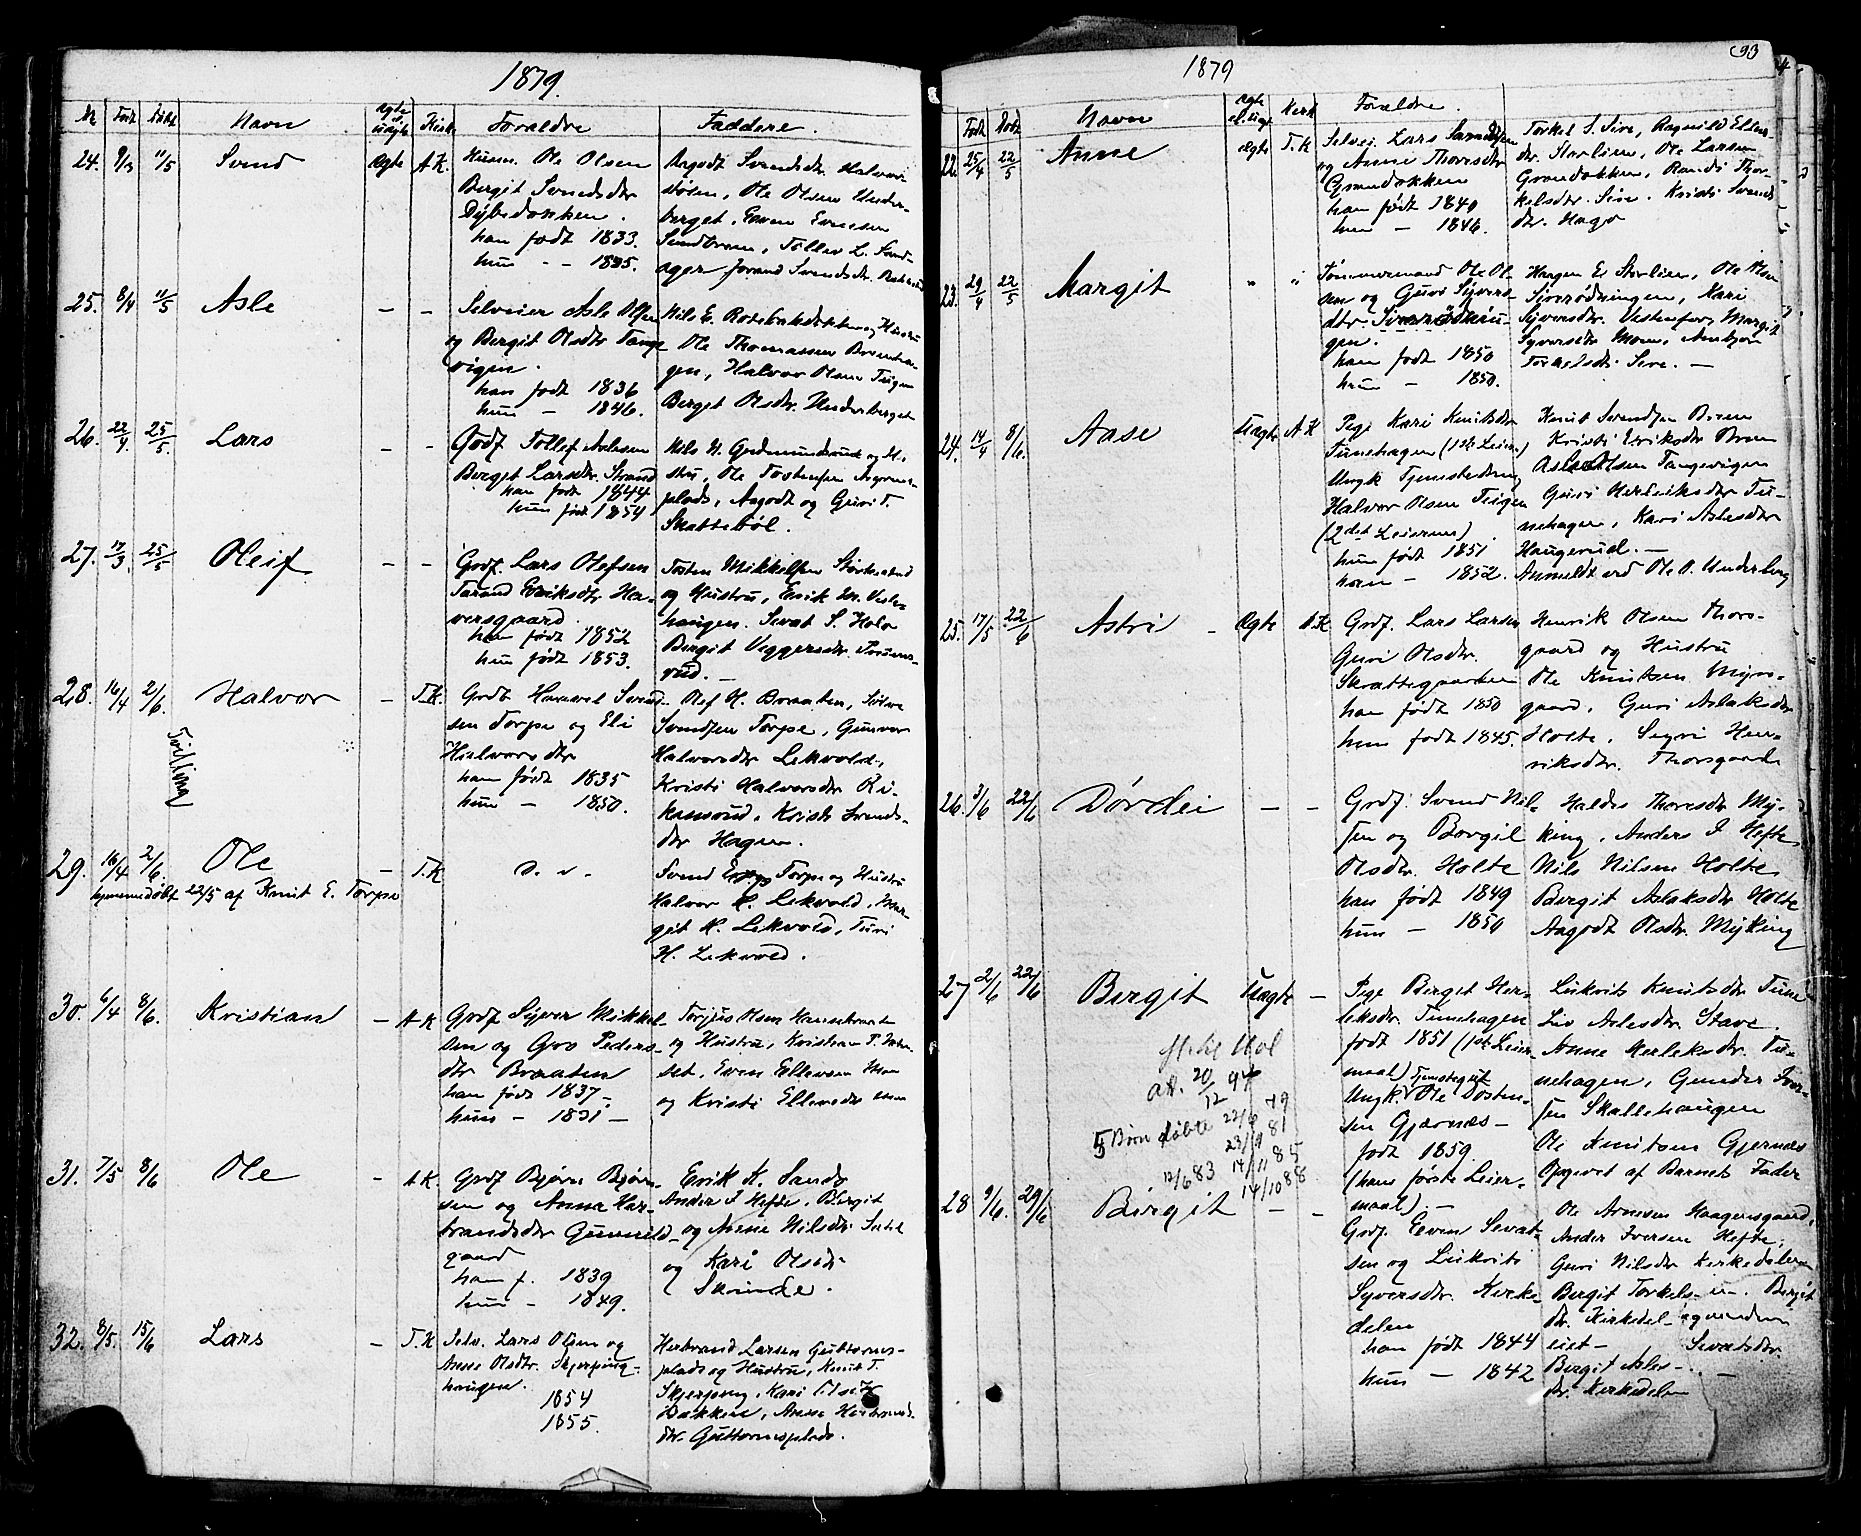 1879.
Nr Født Døbt Navn Ægte el. uægte Kirk. Forældre Faddere.
24. 9/3 11/5 Svend Ægte A.K.
Husm. Ole Olsen
Bergit Svendsdtr
Dybedokken.
han født 1833.
hun - - 1835.
Aagodt Svendsdtr. Halvor
støen, Ole Olsen Under-
berget, Even Evensen
Sundbroen, Tollev L. Sand-
ager Jorand Svendsdtr.
25. 8/4 11/5 Asle - -
Selveier Asle Olsen
og Bergit Olsdtr Tange
vigen.
han født 1836
hun - 1846.
Nils E. Rotebakdokken og Hustru
Ole Thomassen Brenha-
gen, Halvor Olsen Teigen
Berget Olsdtr. Underberget
26. 22/4 25/5. Lars - -
Godf. Tollef Aslesen
Berget Larsdtr. Strand
han født 1844
hun født 1854
Nils N. Gudmundsrud og H.-
stru, Ole Tostensen
plads, Aagodt og Guri T.
Skattebøl.
27. 17/3 25/5 Oleif. - -
Godf. Lars Olefsen
Jorand Eriksdtr Ha-
versgaard.
han født 1852
hun født 1853.
Tosten Mikkelsen
og Hustru, Erik Ev. Veste-
haugen. Sevat S. Holo
Bergit Viggersdtr.
rud. -
28. 16/4 2/6. Halvor - T.K.
Godf. Haavel Svend-
sen Torpe og Eli
Halvorsdtr
han født 1835
hun - 1850.
Olef H. Braaten, Sølve
Svendsen Torpe, Gunvor
Halvorsdtr Lekvold,
Kristi Halvorsdtr Ri-
kansrud, Kristi Svends-
dtr Hagen.
Tvillinger
29. 16/4 2/6. Ole - T.K
hjemmedøbt 22/5 af Knut E. Torpe
D. v.
Svend Torpe og Hustru
Halvor H. Lekvold, Mar-
git H. Lekvold, Turi
H. Lekvold.
30. 6/4 8/6. Kristian - A.K
Godf Syver Mikkel-
sen og Gro Peders-
dtr Braaten
han født 1837-
hun - 1831 -
Torjus Olsen
og Hustru, Kristian P.
set, Even Ellevsen Moen
og Kristi Ellevsdtr Moen
31. 7/5 8/6 Ole - A.K.
Godf Bjørn Bjørn-
sen og Anna Her-
brandsdtr Gunnild-
gaard
han f. 1839
hun - 1849.
Erik K. Sando
Ander I Hefte, Bergit
og Anne Nilsdtr
og Kari Olsdtr
Sevinde.
32. 8/5. 15/6 Lars - T.K
Selv. Lars Olsen og
Anne Olsdtr. Skjerping-
haugen.
1854
1855.
Herbrand Larsen Guttorms-
plads og Hustru, Knut T.
Skjerping, Kari Olsdtr
Bakken, Anne Herbrands-
dtr. Guttormsplads.
93
1879
Født Døbt Navn Ægte el. uægt Kirk Forældre.
22. 25/4 22/5 Anne Ægte T.K
Selvei. Lars Svendsen
og Anne Thoresdtr
Grandokken
han født 1840
hun - 1846.
Torkel S. Sire, Ragnild Ellens
dtr. Storlien, Ole Larsen
Grandokken, Randi Thor-
kelsdtr. Sire. Kristi Svends
dtr. Hagø
23. 29/4 22/5 Margit " "
Tømmermand Ole Ol-
sen og Guri Syvers-
dtr
gen.
han født 1850
hun - 1850.
Haagen E. Storlien, Ole Olsen
Kari
Syversdtr. Vestenfor, Margit
Syversdtr Moen, Ambjør
Torkelsdtr Sire. -
24. 14/4 8/6. Aase Uægte A.K
Pige Kari Knutsdtr
Tunehagen (1ste Leierm.)
Ungk Tjenestedreng
Halvor Olsen Teigen
(2det Leiermaal).
hun født 1851
han - 1852.
Knut Svendsen Bræn
Kristi Eriksdtr Bræn
Asle Olsen Tangevigen
Guri Herleiksdtr Tu-
nehagen, Kari Aslesdtr
Haugerud. -
Anmeldt ved Ole O. Underberg
25. 17/5 22/6 Astri - Ægte A.K
Godf. Lars Larsen
Guri Olsdtr.
Skrattegaarden
han født 1850
hun født 1845.
Henrik Olsen Thors-
gaard og Hustru
Ole Knutsen Myrs-
gaard, Guri Aslaksdtr
Holte, Sigri Hen-
riksdtr. Thorsgaard
26. 3/6 22/6 Dørdei - -
Godf. Svend Nil-
sen og Bergit
Olsdtr. Holte
han født 1849
hun - 1850
Haldis Thoresdtr My-
king, Anders I Hefte
Nils Nilsen Holte
Bergit Aslaksdtr Holte
Aagodt Olsdtr. Myking
27 2/6 22/6 Birgit Uægte -
20/12 94
5 Børn døbte 22/6 79
23/9 81
12/6 83 14/11 85
14/10 88
Pige Berget Her-
leksdtr. Tunehagen
født 1851 (1ste Leier-
maal) Tjenestegut
Ungk. Ole Tosten-
sen Gjernæs -
født 1859.
(hans første Leier-
maal) -
Liukvits Knutsdtr Tune
Liv Aslesdtr. Stave.
Anne Herleksdtr. Tu-
nehagen, Gunder Iver-
sen Skallehaugen
Ole Knutsen Gjernæs
Opgivet af Barnets Fader
28 9/6. 29/6 Birgit - -
Godf. Even Sevat-
sen og Liukvits
Syversdtr. Kirke-
delen
han født 1844
hun - 1842
Ole Arnesen Haagensgaard,
Ander Iversen Hefte,
Guri Nilsdtr Kirkedelen
Bergit Torkels- Bergit
dtr. Kirkedel-
eiet - Sevatsdtr.
Birgit Asles- -
dtr. Kirkedelen